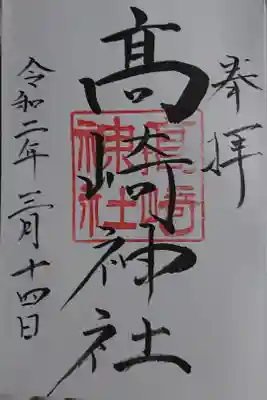 奉拝
髙﨑神社
髙﨑神社
令和二年三月十四日